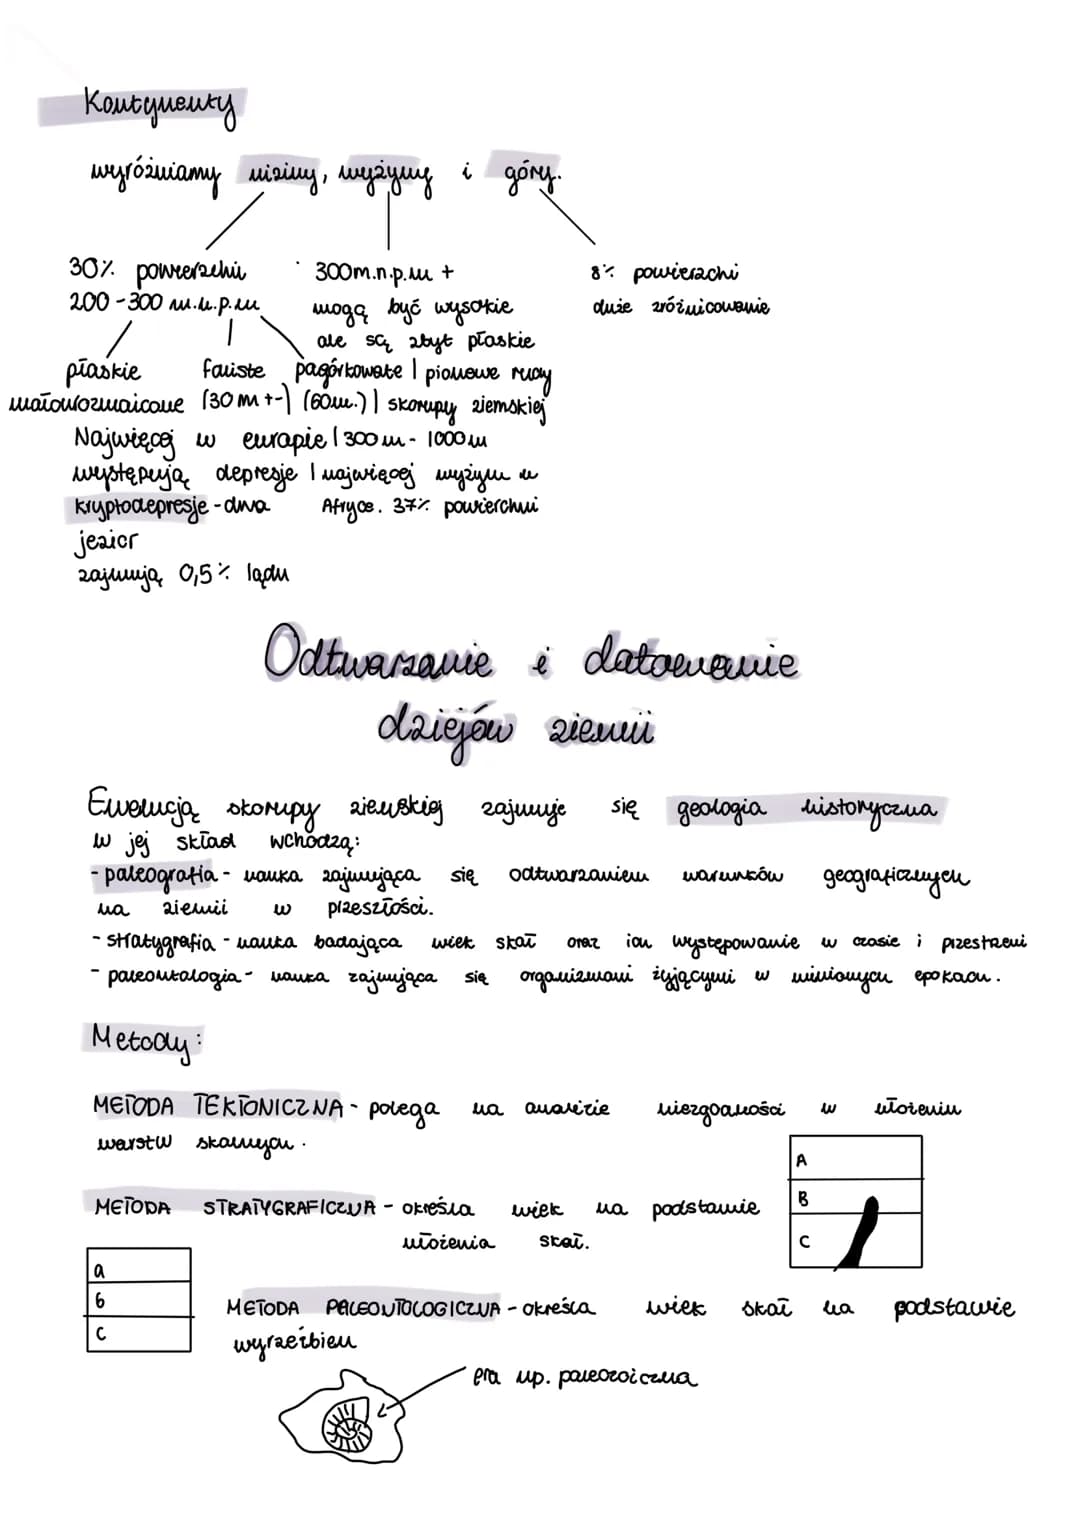 Kontynenty
wyróżniamy niziny, wyżyny i góry.
30% powierzchni
200-300 m.n.p.m
płaskie
małourozmaicone
faliste
(30 m +-)
pagórkowate
(60m.)
Najwięcej w europie
występują depresje
kryptodepresje - dna
jezior
zajmują 0,5% lądu
300m.n.p.m +
mogą być wysokie
ale są zbyt płaskie
pionowe ruchy
skorupy ziemskiej
300 m - 1000 m
najwięcej wyżyn w
Afryce. 37% powierchni
8% powierzchni
duże zróżnicowanie
Odtwarzanie i datowanie
dziejów ziemii
Ewolucją skorupy ziemskiej zajmuje się geologia historyczna
w jej skład wchodzą:
- paleografia - nauka zajmująca się odtwarzaniem warunków geograficznych
na ziemii w przeszłości.
- stratygrafia - nauka badająca wiek skał oraz ich występowanie w czasie i przestrzeni
- paleontologia - nauka zajmująca się organizmami żyjącymi w minionych epokach.
Metody:
METODA TEKTONICZNA - polega na analizie niezgodności w ułożeniu
warstw skalnych.
A
B
C
METODA STRATYGRAFICZNA - określa wiek na podstawie
ułożenia skał.
a
b
c
METODA PALEONTOLOGICZNA - określa wiek skał na podstawie
wyrzeźbień
era np. paleozoiczna